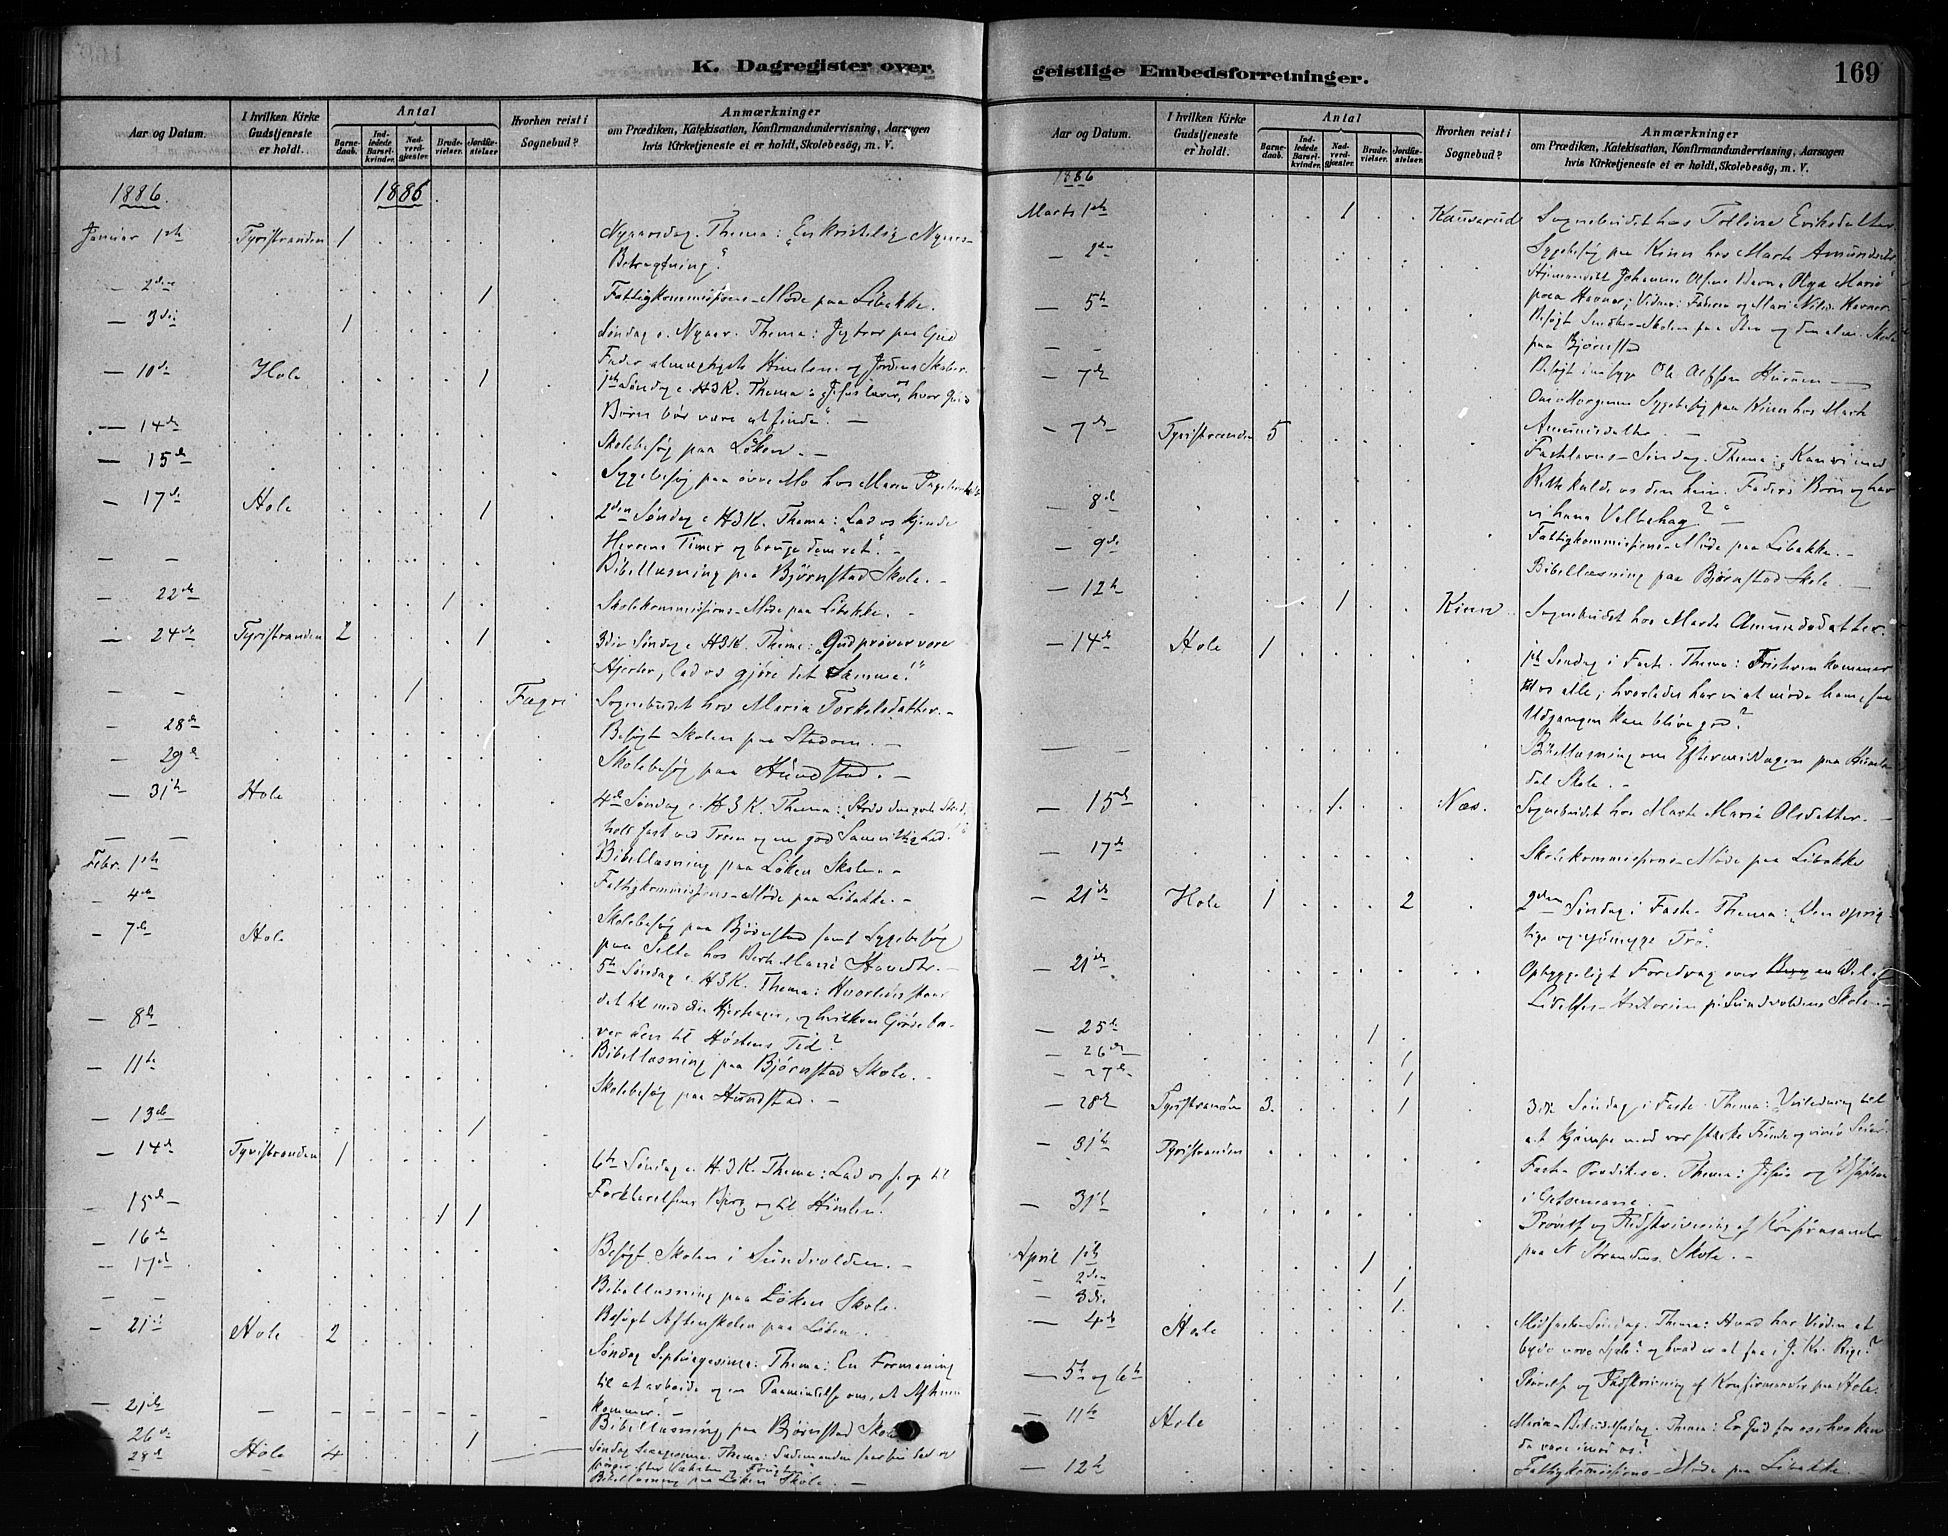 K. Dagregister over
Aar og Datum.
I hvilken Kirke Gudstjeneste er holdt.
Antal
Barnedaab.
Indledede Barselkvinder.
Nadverdgjester.
Brudevielser.
Jordfæstelser.
Hvorhen reist i Sognebud?
Anmærkninger
om Prædiken, Katekisation, Konfirmandundervisning, Aarsagen
hvis Kirketjeneste ei er holdt, Skolebesög, m. V.
1886. 1886.
Januar 1ste Tyristranden 1 Nyaarsdag. Thema: "En kristelig Nyaars-
Betragtning."
— 2den 1 Fattigkommissions-Møde paa Libakke.
— 3die 1 Søndag e. Nyaar. Thema: Jeg tror paa Gud
Fader almægtigste Himlens og Jordens Skaber.
— 10de Hole 1 1ste Søndag e. H3K. Thema: Jesus lærer, hvor Guds
Børn bør være at finde." —
— 14de Skolebesøg paa Løken. —
— 15de Sygebesøg paa øvre Mo hos Maren
— 17de Hole 1 2den Søndag e. H3K. Thema: "Lad os kjende
Herrens Timer og bruge dem ret". —
— — Bibellæsning paa Bjørnstad Skole. —
— 22de 1 Skolekommissions-Møde paa Libakke. —
— 24de Tyristranden 2 1 3die Søndag e. H3K. Thema: "Gud prøver vore
Hjerter, lad os gjøre det Samme!"
— — 1 Fagri Sognebudet hos Maria Torkelsdatter. —
— 28de Besøgt Skolen paa Stadum. —
— 29de Skolebesøg paa Hundstad. —
— 31te Hole 4de Søndag e. H3K. Thema: Strid den gode Strid,
hold fast ved Troen og en god Samvittighed!"
— — Bibellæsning paa Løken Skole. —
Febr. 1ste Fattigkommissions-Møde paa Libakke. —
— 4de Skolebesøg paa Bjørnstad samt Sygebesøg
paa Selte hos Berte Marie
— 7de Hole 5te Søndag e. H3K. Thema: Hvorledes staar
det til med din Hjerteager, og hvilken Grøde bæ-
rer den til Høstens Tid?
— 8de Bibellæsning paa Bjørnstad Skole. —
— 11te Skolebesøg paa Hundstad. —
— 13de 1
— 14de Tyristranden 1 6te Søndag e. H3K. Thema: Lad os se op til
Forklarelsens Bjerg og til Himlen!
— 15de 1 1
— 16de Besøgt Skolen i Sundvolden. —
— 17de Bibellæsning paa Løken Skole.
— — Besøgt Aftenskolen paa Løken.
— 21de Hole 2 Søndag Septuagesima. Thema: En Formaning
til at arbeide og en Paamindelse om, at Aftenen
kommer." —
— 21de — — — — — — — Bibellæsning paa Bjørnstad Skole
— 26de 1
— 28de Hole 4 Søndag Sexagesima. Thema: Sædemanden
Bibellæsning paa Løken Skole. —
geistlige Embedsforretninger.
169
Aar og Datum.
I hvilken Kirke Gudstjeneste er holdt.
Antal
Barnedaab.
Indledede Barselkvinder.
Nadverdgjester.
Brudevielser.
Jordfæstelser.
Hvorhen reist i Sognebud?
Anmærkninger
om Prædiken, Katekisation, Konfirmandundervisning, Aarsagen
hvis Kirketjeneste ei er holdt, Skolebesög, m. V.
1886
Marts 1ste 1 Sognebudet hos Eriksdatter.
— 2den Sygebesøg paa Kinn hos Marte Amundsdatter
— 5te Hjemmedøbt Johannes Olsens Barn Olga Marie
paa Havner; Vidner: Faderen og Mari Havner.
— — Besøgt Skolen paa Sten og den alm. Skole
paa Bjørnstad
— 7de Besøgt
Om Morgenen Sygebesøg paa Kinn hos Marte
Amundsdatter. —
— 7de Tyristranden 5 Fastelavns-Søndag. Thema: Kan vi med
Rette kalde os den him. Faders Børn og har
vi hans Velbehag?"
— 8de Fattigkommissions-Møde paa Libakke. —
— 9de Bibellæsning paa Bjørnstad Skole. —
— 12te 1 Kinn Sognebudet hos Marte Amundsdatter.
— 14de Hole 1 1ste Søndag i Faste. Thema: Fristeren kommer
til os alle; hvorledes har vi at møde ham, saa
Udgangen kan blive god?
— — Bibellæsning om Eftermiddagen paa
dal Skole. —
— 15de 1 Næs. Sognebudet hos Marte Marie Olsdatter. —
— 17de Skolekommissions-Møde paa Libakke
— 21de Hole 1 2 2den Søndag i Faste. Thema: "Den oprig-
tige og ydmyge Tro."
— 21de Opbyggeligt Foredrag over en Del af
Lidelses-Historien paa Sundvoldens Skole. —
— 25de 1
— 26de 1
— 27de 1
— 28de Tyristranden 3. 1 3die Søndag i Faste. Thema: Veiledning til
at kjæmpe mod vor stærke Fiende og vinde Seier.
— 31te Tyristranden Faste-Prædiken. Thema: Jesus og Disiplene
i Getsemane. —
— 31te Prøvelse og Indskrivning af Konfirmander
paa N. Strandens Skole. —
April 1ste 1
— 2den 1
— 3die 1.
— 4de Hole Midfaste-Søndag. Thema: Hvad har Verden at
byde vore Sjæle? og hvad er at faa i J. Kr. Rige?
— 5te og 6te Prøvelse og Indskrivning af Konfirmander paa Hole.
— 11te Hole Mariæ-Bebudelsesdag. Thema: Er Gud for os, hvo kan
da være imod os?
— 12te Fattigkommissions-Møde paa Libakke.